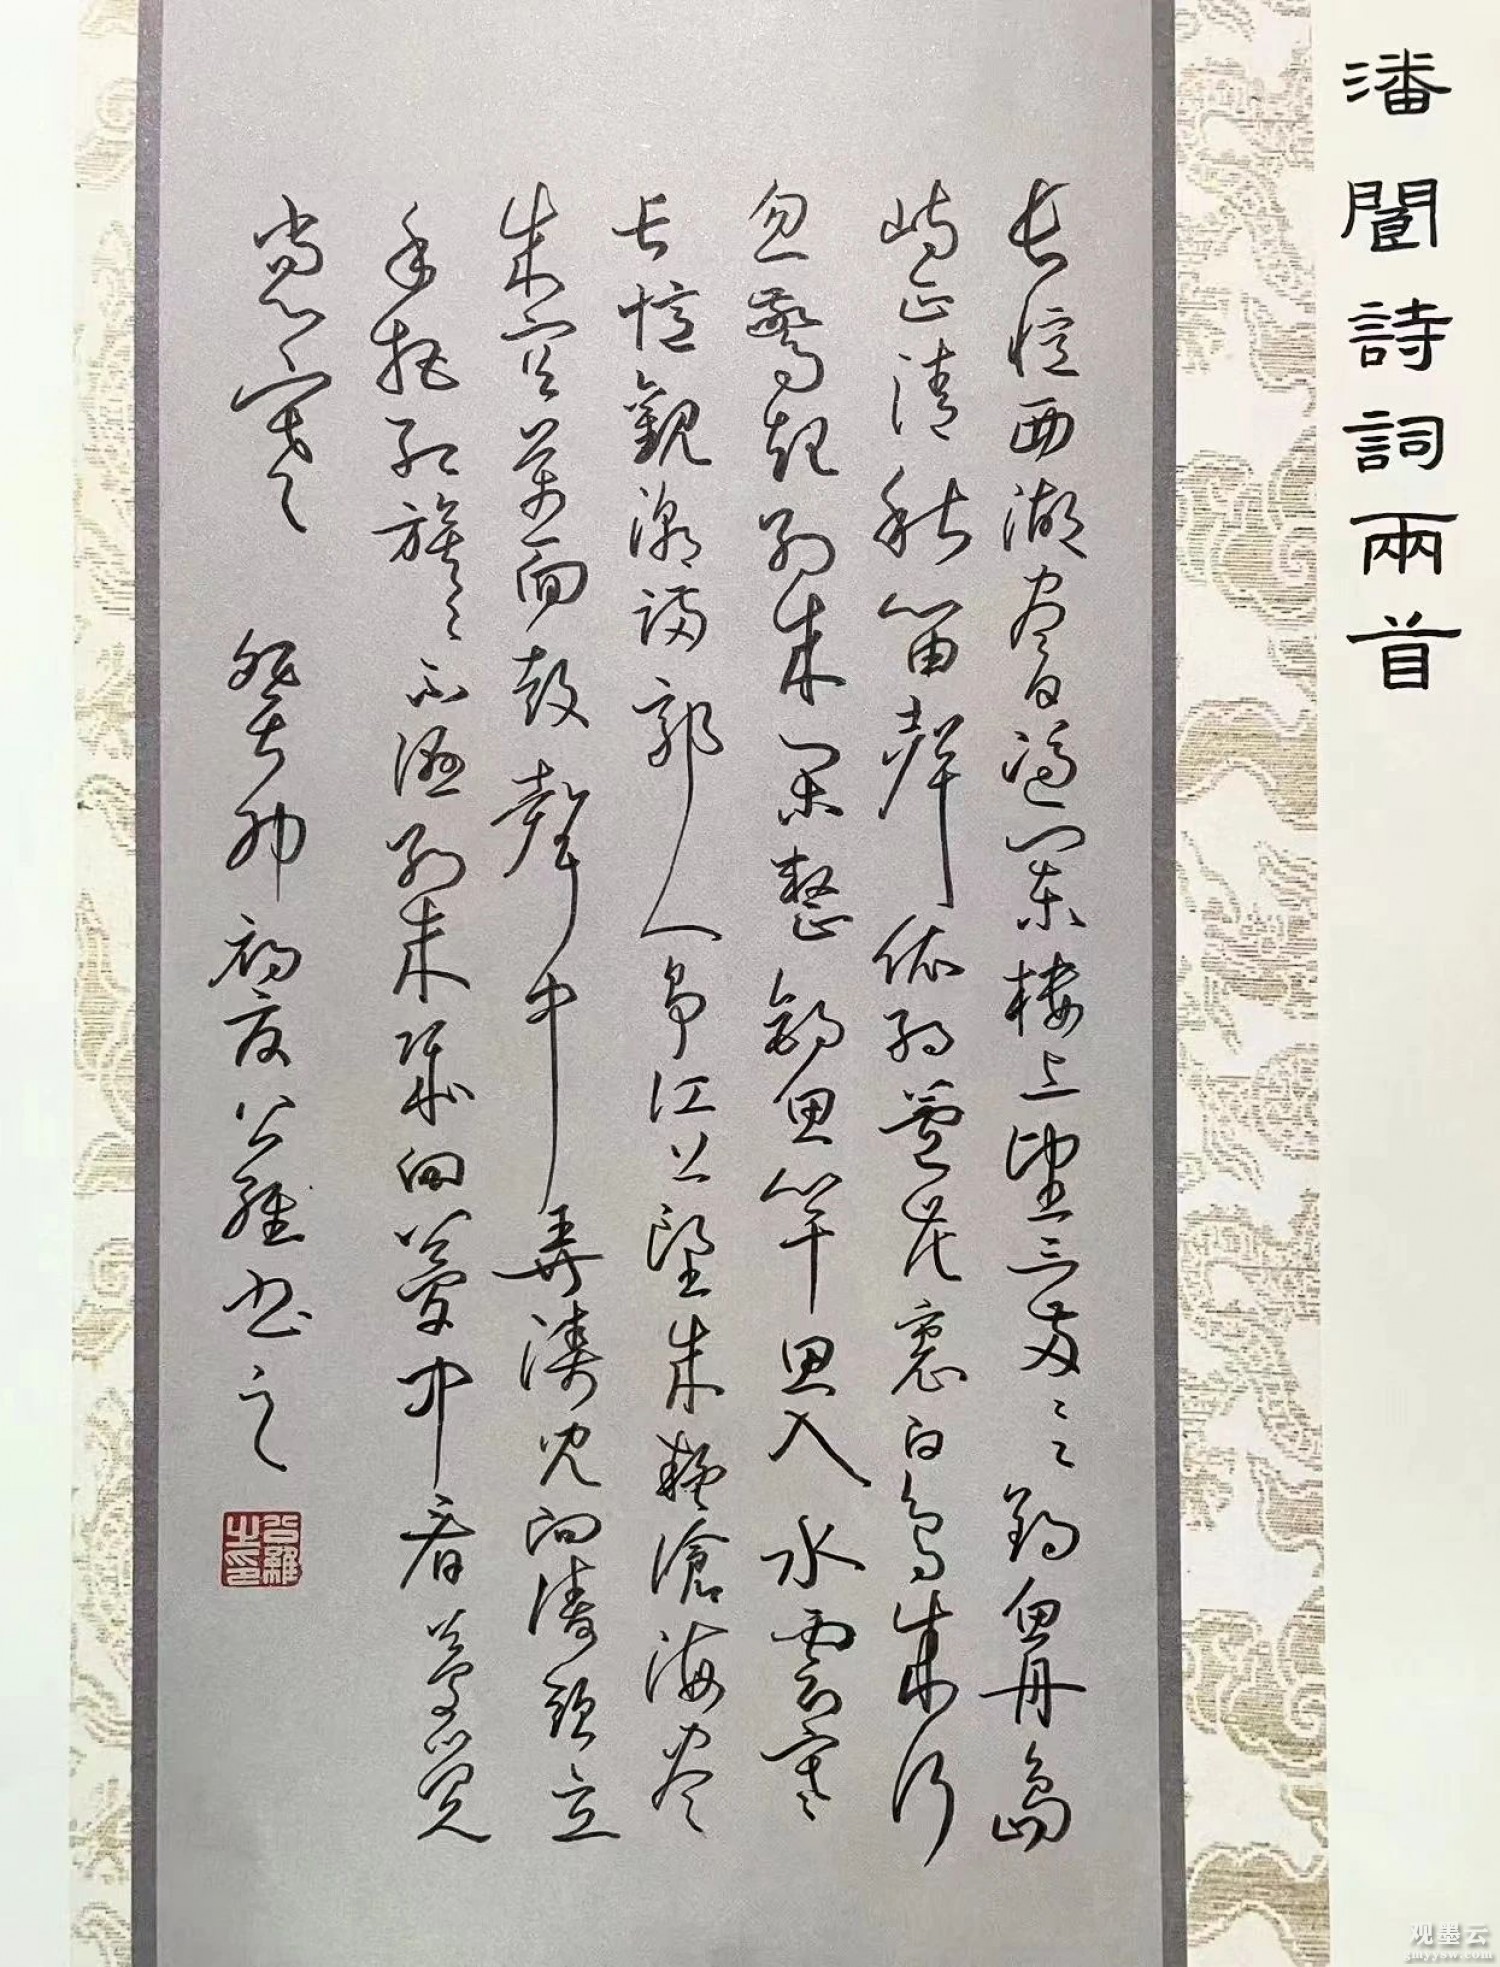 潘閬詩詞兩首
長憶西湖盡日憑闌樓上望三三兩兩釣魚舟島
嶼正清秋笛聲依約蘆花裏白鳥成行
忽驚起別來閑整釣魚竿思入水雲寒
長憶觀潮滿郭人爭江上望來疑滄海盡
成空萬面鼓聲中弄濤兒向濤頭立
手把紅旗旗不濕別來幾向夢中看夢覺
尚心寒 癸卯初夏公書之
观墨云
gmyysw.com